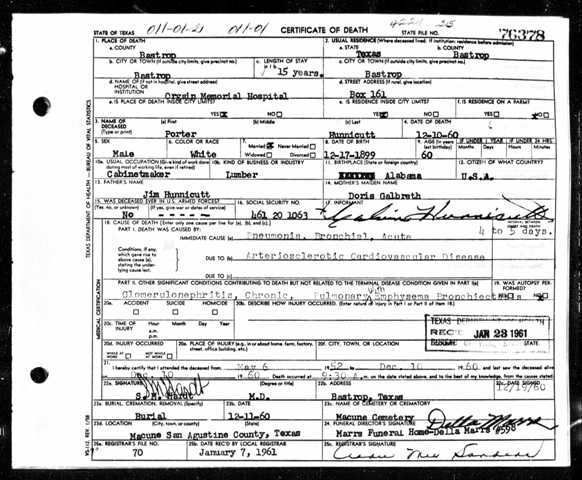 011-01-21 011-01 4221 25
STATE OF TEXAS CERTIFICATE OF DEATH STATE FILE NO. 76378
1. PLACE OF DEATH 2. USUAL RESIDENCE (Where deceased lived. If institution: residence before admission)
a. COUNTY a. STATE b. COUNTY
Bastrop Texas Bastrop
b. CITY OR TOWN (If outside city limits, give precinct no.) c. LENGTH OF STAY c. CITY OR TOWN (If outside city limits, give precinct no.)
Bastrop 15 years. Bastrop
d. NAME OF (If not in hospital, give street address) HOSPITAL OR INSTITUTION d. STREET ADDRESS (If rural, give location)
Orgain Memorial Hospital Box 161
e. IS PLACE OF DEATH INSIDE CITY LIMITS? e. IS RESIDENCE INSIDE CITY LIMITS? f. IS RESIDENCE ON A FARM?
YES NO YES NO YES NO
3. NAME OF DECEASED (Type or print) (a) First (b) Middle (c) Last 4. DATE OF DEATH
Porter Hunnicutt 12-10-60
5. SEX 6. COLOR OR RACE 7. Married Never Married Widowed Divorced 8. DATE OF BIRTH 9. AGE (In years last birthday) IF UNDER 1 YEAR IF UNDER 24 HRS.
Months Days Hours Minutes
Male White 12-17-1899 60
10a. USUAL OCCUPATION (Give kind of work done during most of working life, even if retired) 10b. KIND OF BUSINESS OR INDUSTRY 11. BIRTHPLACE (State or foreign country) 12. CITIZEN OF WHAT COUNTRY?
Cabinetmaker Lumber Alabama U.S.A.
13. FATHER'S NAME 14. MOTHER'S MAIDEN NAME
Jim Hunnicutt Doris Galbreth
15. WAS DECEASED EVER IN U.S. ARMED FORCES? 16. SOCIAL SECURITY NO. 17.
(Yes, no, or unknown) (If yes, give war or dates of service)
No - - - - - 461 20 1063 Calvin Hunnicutt
18. CAUSE OF DEATH (Enter only one cause per line for (a), (b), and (c).)
PART I. DEATH WAS CAUSED BY:
IMMEDIATE CAUSE (a) Pneumonia, Bronchial, Acute 4 to 5 days.
Conditions, if any, which gave rise to above cause (a), stating the underlying cause last.
DUE TO (b) Arteriosclerotic Cardiovascular Disease
DUE TO (c)
PART II. OTHER SIGNIFICANT CONDITIONS CONTRIBUTING TO DEATH BUT NOT RELATED TO THE TERMINAL DISEASE CONDITION GIVEN IN PART I(a) 19. WAS AUTOPSY PERFORMED?
with
Glomerulonephritis, Chronic, Pulmonary Emphysema Bronchiectasis YES NO
20a. ACCIDENT SUICIDE HOMICIDE 20b. DESCRIBE HOW INJURY OCCURRED. (Enter nature of injury in Part I or Part II of item 18.)
20c. TIME OF INJURY Hour Month Day Year a.m. p.m.
TEXAS DEPARTMENT OF HEALTH
REC'D JAN 23 1961
20d. INJURY OCCURRED 20e. PLACE OF INJURY (e.g., in or about home, farm, factory, street, office building, etc.) 20f. CITY, TOWN, OR LOCATION COUNTY
WHILE AT WORK NOT WHILE AT WORK
21. I hereby certify that I attended the deceased from May 6 1952 to Dec. 10 1960
1960. Death occurred at 9:30 A.m. on the date stated above, and to the best of my knowledge, from the causes stated.
22a. SIGNATURE (Degree or title) 22b. ADDRESS 22c. DATE SIGNED
M.D. Bastrop, Texas 12/19/60
23a. BURIAL, CREMATION, REMOVAL (Specify) 23b. DATE 23c. NAME OF CEMETERY OR CREMATORY
Burial 12-11-60 Macune Cemetery
23d. LOCATION (City, town, or county) (State) 24. FUNERAL DIRECTOR'S SIGNATURE Della Marrs
Macune San Agustine County, Texas Marrs Funeral Home-Della Marrs #598
25a. REGISTRAR'S FILE NO. 25b. DATE REC'D BY LOCAL REGISTRAR 25c. REGISTRAR'S SIGNATURE
70 January 7, 1961
TEXAS DEPARTMENT OF HEALTH — BUREAU OF VITAL STATISTICS
MEDICAL CERTIFICATION